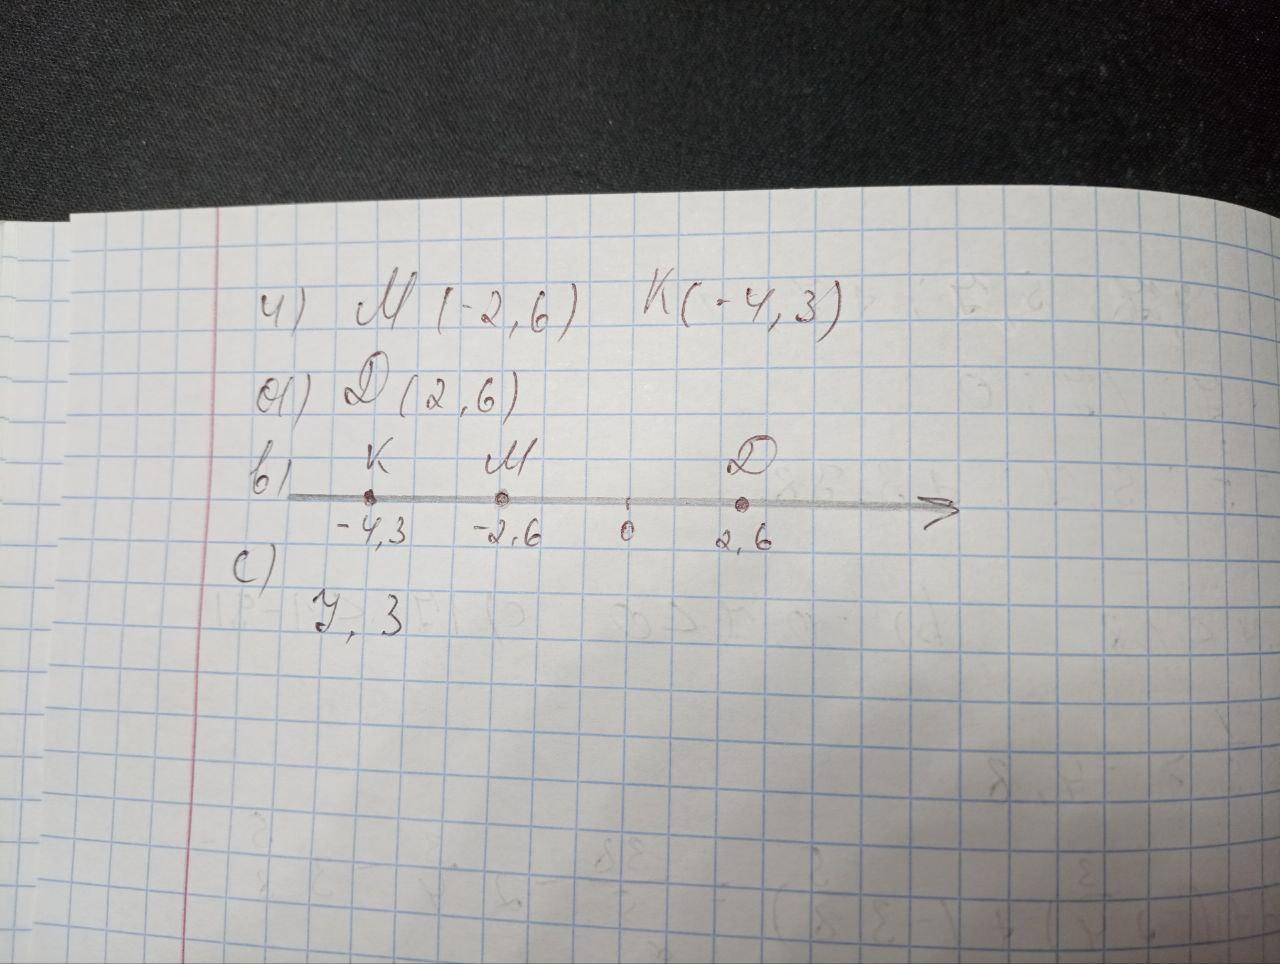 4) М (-2,6) К(-4,3)
а) Д (2,6)
в) К М Д
-4,3 -2,6 0 2,6
с)
4,3